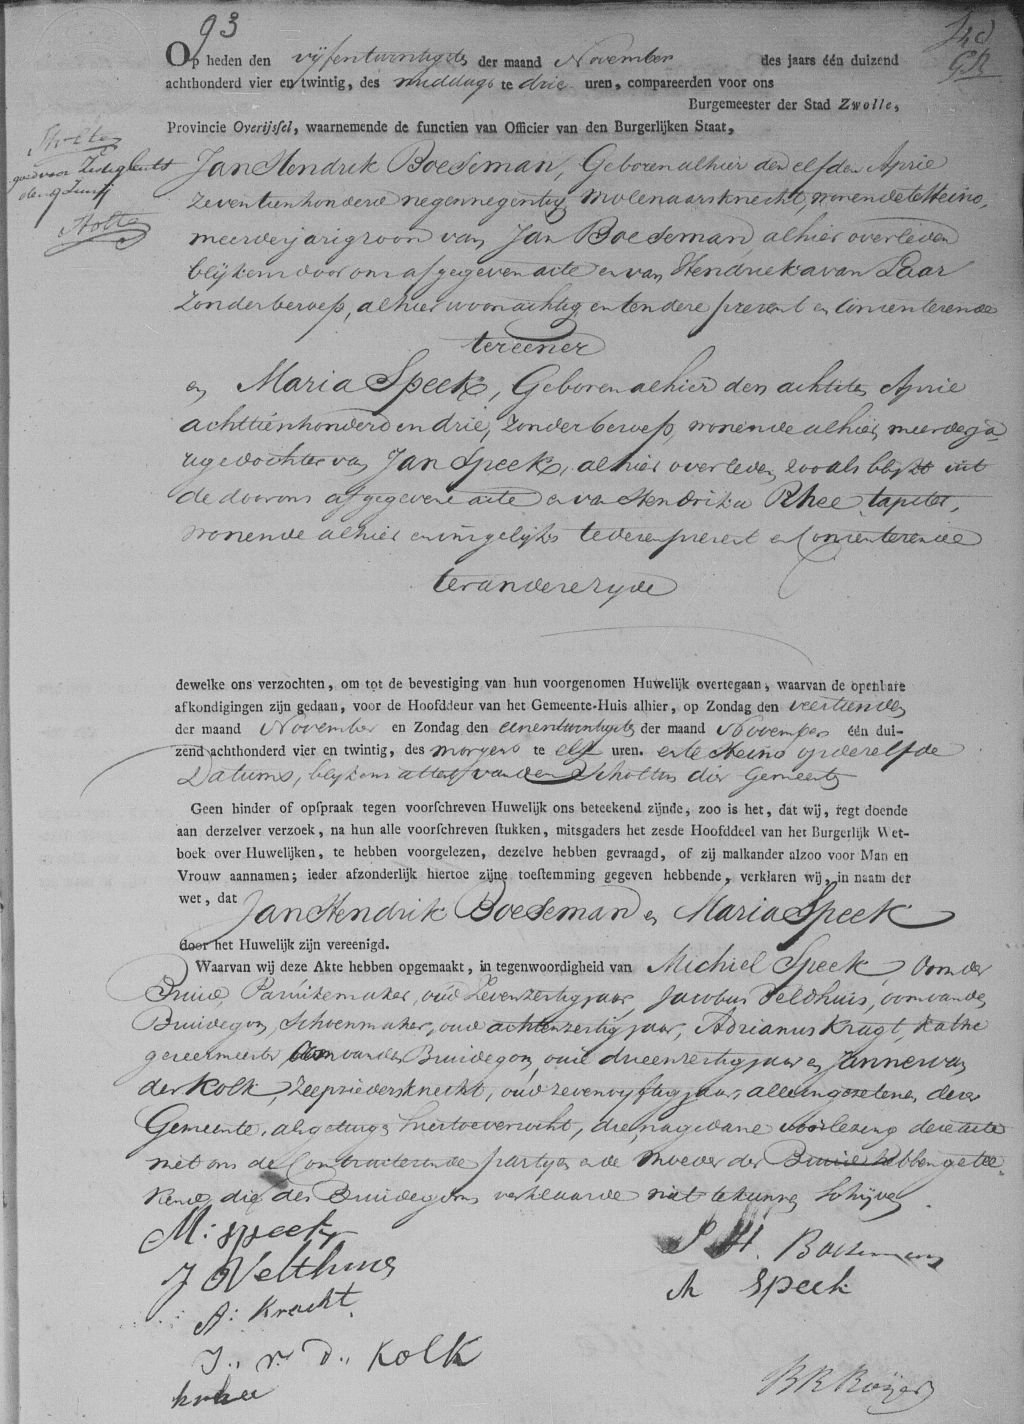 93
Op heden den vijfentwintigste der maand November des jaars één duizend
achthonderd vier en twintig, des middags te drie uren, compareerden voor ons
Burgemeester der Stad Zwolle,
Provincie Overijssel, waarnemende de functien van Officier van den Burgerlijken Staat,
Jan Hendrik Boeseman, Geboren alhier den elfden April
Zeventienhonderd negennegentig, molenaarsknecht, wonende te Heino,
meerderjarig zoon van Jan Boeseman, alhier overleden
blijkens door ons afgegeven acte en van Hendrieka van Laar
Zonder beroep, alhier woonachtig en ten dere present en Consenterende
ter eener
en Maria Speek, Geboren alhier den achtsten April
achttienhonderd en drie, Zonder beroep, wonende alhier, meerderja
rige dochter van Jan Speek, alhier overleden, zooals blijkt uit
de door ons afgegevene acte en van Hendrika Rhee, tapster,
wonende alhier en insgelijks te deren present en Consenterende
ter andere zyde
dewelke ons verzochten, om tot de bevestiging van hun voorgenomen Huwelijk overtegaan, waarvan de openbare
afkondigingen zijn gedaan, voor de Hoofddeur van het Gemeente-Huis alhier, op Zondag den veertienden
der maand November en Zondag den eenentwintigste der maand November één dui-
zend achthonderd vier en twintig, des morgens te elf uren. en te Heino op dezelfde
Datums, blykens attest van den Scholtus dier Gemeente
Geen hinder of opspraak tegen voorschreven Huwelijk ons beteekend zijnde, zoo is het, dat wij, regt doende
aan derzelver verzoek, na hun alle voorschreven stukken, mitsgaders het zesde Hoofddeel van het Burgerlijk Wet-
boek over Huwelijken, te hebben voorgelezen, dezelve hebben gevraagd, of zij malkander alzoo voor Man en
Vrouw aannamen; ieder afzonderlijk hiertoe zijne toestemming gegeven hebbende, verklaren wij, in naam der
wet, dat Jan Hendrik Boeseman en Maria Speek
door het Huwelijk zijn vereenigd.
Waarvan wij deze Akte hebben opgemaakt, in tegenwoordigheid van Michiel Speek, Oom der
Bruid, Paruikemaker, oud Zevenzestig jaar, Jacobus Veldhuis, oom van de
Bruidegom, Schoenmaker, oud achtenzestig jaar, Adrianus Kragt,
Oom van den Bruidegom, oud drieenzestig jaar en Janne van
der Kolk, Zeepziedersknecht, oud zevenvyftig jaar, alle ingezetenen dezer
Gemeente, als getuigen hiertoe verzocht, die, na gedane voorlezing dezer acte
met ons de Contracterende partyen en de moeder der Bruid hebben getee-
kend, die des Bruidegoms verklaarde niet te kunnen Schryven.
M: Speek
J Velthuis
A: Kracht
J. v. D. Kolk
J H. Boeseman
M Speek